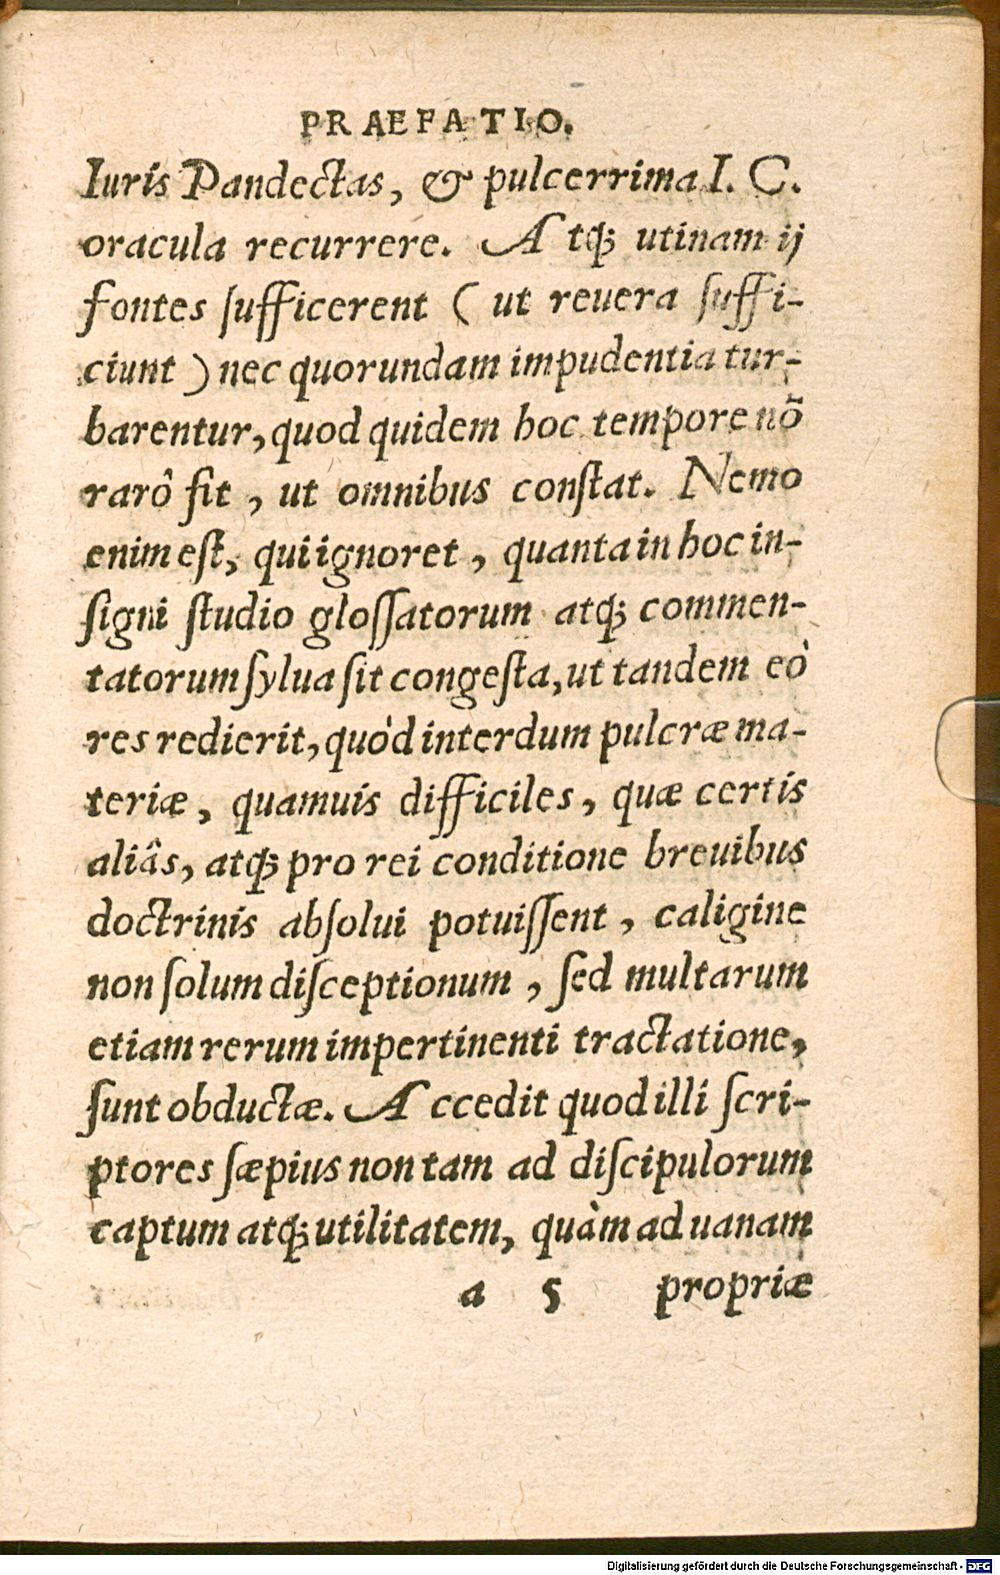 PRAEFATIO.
Iuris Pandectas, & pulcerrima I. C.
oracula recurrere. Atq́; utinam ij
fontes ſufficerent ( ut reuera ſuffi-
ciunt ) nec quorundam impudentia tur-
barentur, quod quidem hoc tempore nõ
rarô fit, ut omnibus conſtat. Nemo
enim eſt, qui ignoret, quanta in hoc in-
ſigni ſtudio gloſſatorum atq́; commen-
tatorum ſylua ſit congeſta, ut tandem eò
res redierit, quòd interdum pulcræ ma-
teriæ, quamuis difficiles, quæ certis
aliâs, atq́; pro rei conditione breuibus
doctrinis abſolui potuiſſent, caligine
non ſolum diſceptionum, ſed multarum
etiam rerum impertinenti tractatione,
ſunt obductæ. Accedit quod illi ſcri-
ptores ſæpius non tam ad diſcipulorum
captum atq́; utilitatem, quàm ad uanam
a 5 propriæ
Digitalisierung gefördert durch die Deutsche Forschungsgemeinschaft - DFG